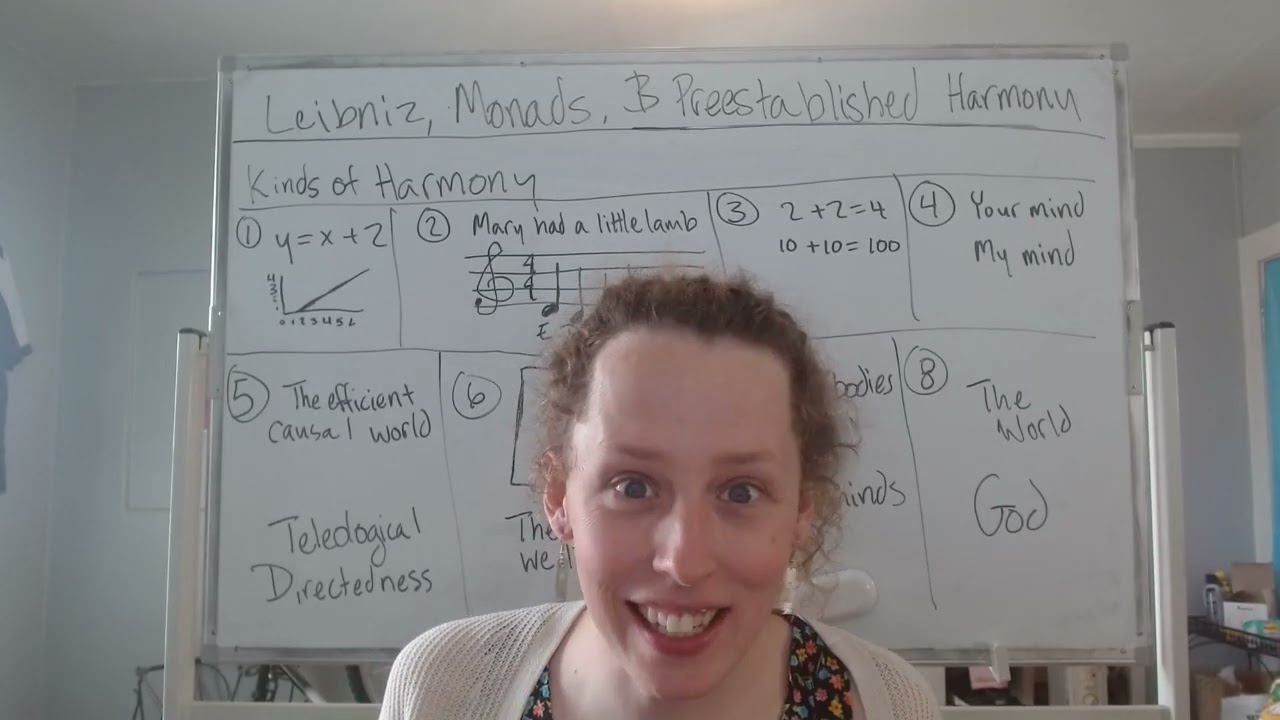 Leibniz, Monads, & Preestablished Harmony
Kinds of Harmony
① y = x + 2
4
3
0 1 2 3 4 5 6
② Mary had a little lamb
4
4
E
③ 2 + 2 = 4
10 + 10 = 100
④ Your mind
My mind
⑤ The efficient
causal world
Teleological
Directedness
⑥
The
we
bodies
minds
⑧ The
World
God